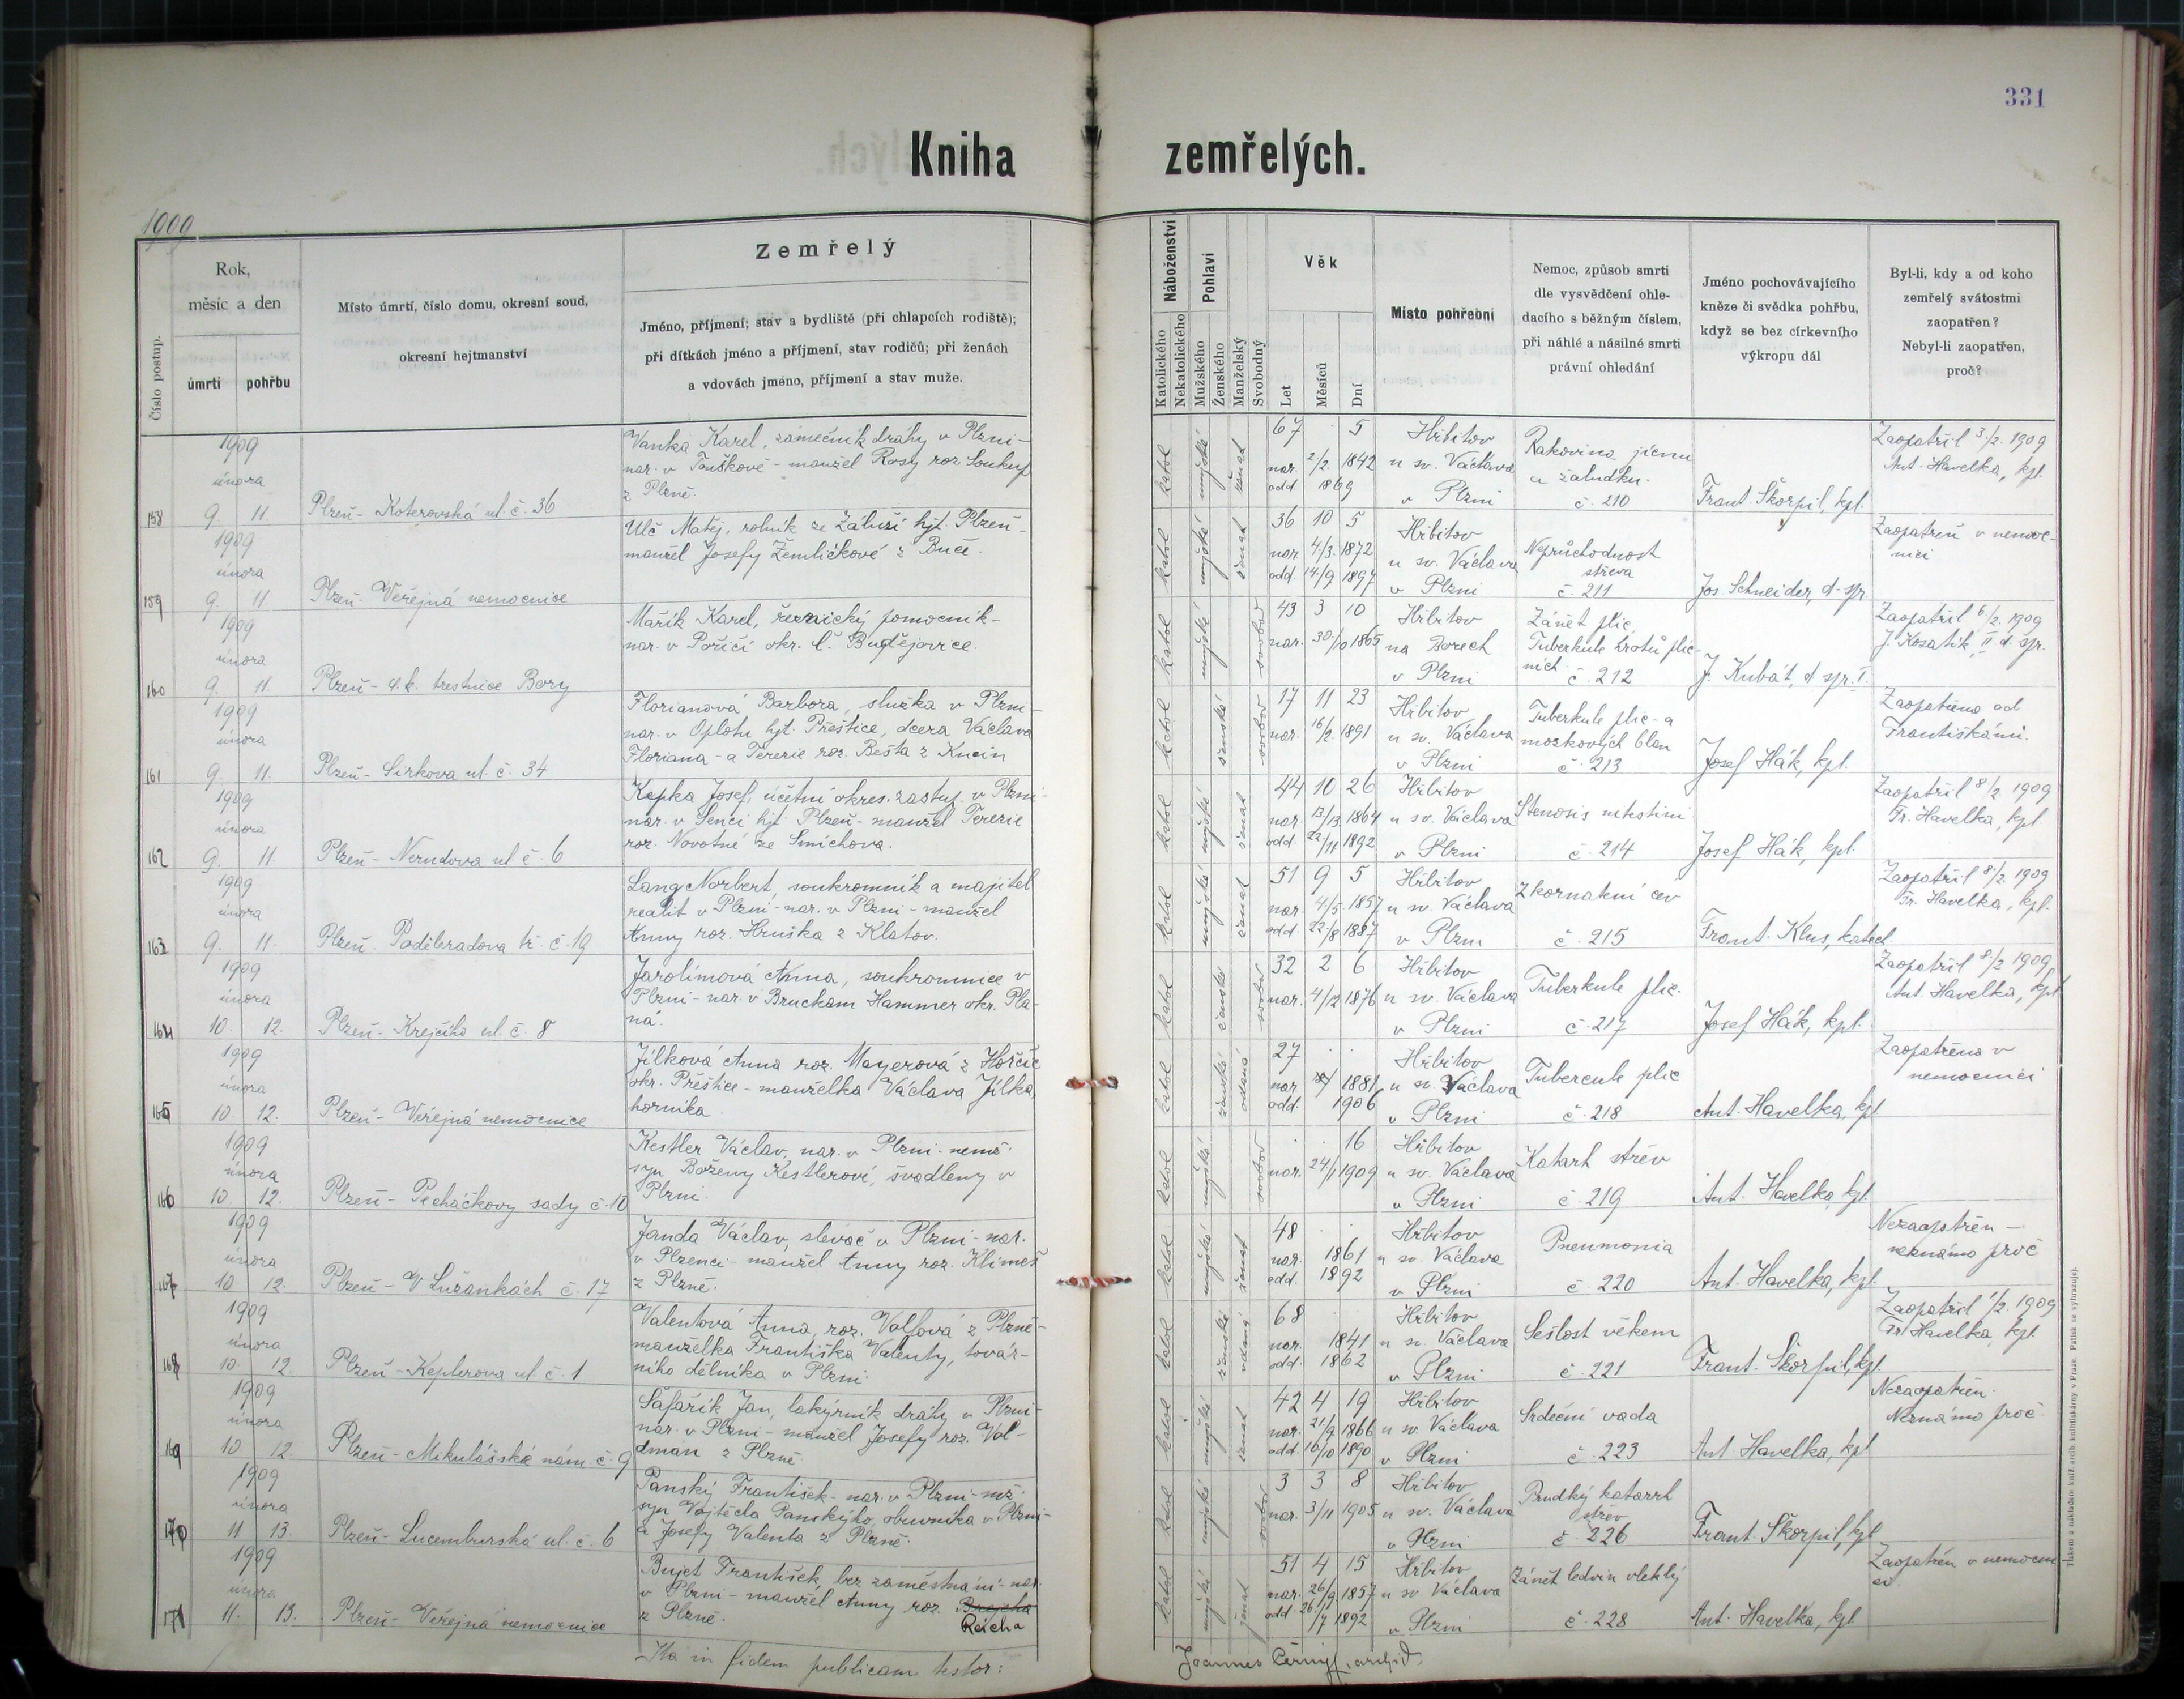 331
Kniha zemřelých.
1909
Číslo postup.
Rok,
měsíc a den
úmrtí
pohřbu
Místo úmrtí, číslo domu, okresní soud,
okresní hejtmanství
Zemřelý
Jméno, příjmení; stav a bydliště (při chlapcích rodiště);
při dítkách jméno a příjmení, stav rodičů; při ženách
a vdovách jméno, příjmení a stav muže.
Náboženství
Katolického
Nekatolického
Pohlaví
Mužského
Ženského
Manželský
Svobodný
Věk
Let
Měsíců
Dní
Místo pohřební
Nemoc, způsob smrti
dle vysvědčení ohle-
dacího s běžným číslem,
při náhlé a násilné smrti
právní ohledání
Jméno pochovávajícího
kněze či svědka pohřbu,
když se bez církevního
výkropu dál
Byl-li, kdy a od koho
zemřelý svátostmi
zaopatřen?
Nebyl-li zaopatřen,
proč?
158
1909
února
9. 11
Plzeň - Koterovská ul. č. 36
Vanka Karel, zámečník dráhy v Plzni -
nar. v Touškově - manžel Rosy roz. Soukup
z Plzně.
katol mužské ženat
67 . 5
nar. 2/2. 1842
odd. 1869
Hřbitov
u sv. Václava
v Plzni
Rakovina jícnu
a žaludku.
č. 210
Frant. Škorpil, kpl.
Zaopatřil 3./2. 1909
Ant. Havelka, kpl.
159
1909
února
9. 11
Plzeň - Veřejná nemocnice
Ulč Matěj, rolník ze Záluží hjt. Plzeň -
manžel Josefy Žemličkové z Buče.
katol mužské ženat
36 10 5
nar 4/3. 1872
odd. 14/9 1897
Hřbitov
u sv. Václava
v Plzni
Neprůchodnost
střeva
č. 211
Jos. Schneider, d. spr.
Zaopatřen v nemoc-
nici
160
1909
února
9. 11.
Plzeň - c. k. trestnice Bory
Mařík Karel, řeznický pomocník -
nar. v Poříčí okr. Č. Budějovice.
katol mužské svobod
43 3 10
nar. 30/10 1865
Hřbitov
na Borech
v Plzni
Zánět plic,
Tuberkule hrotů plic-
ních č. 212
J. Kubát, d. spr. I.
Zaopatřil 6/2. 1909
J. Kosatík, II d. spr.
161
1909
února
9. 11.
Plzeň - Sirkova ul. č. 34
Florianová Barbora, služka v Plzni -
nar. v Oplotu hjt. Přeštice, dcera Václava
Floriana - a Terezie roz. Bešta z Knein
katol ženské svobod
17 11 23
nar. 16/2. 1891
Hřbitov
u sv. Václava
v Plzni
Tuberkule plic - a
mozkových blan
č. 213
Josef Hák, kpl.
Zaopatřena od
Františkánů.
162
1909
února
9. 11.
Plzeň - Nerudova ul č. 6
Kepka Josef, účetní okres. zastup. v Plzni -
nar. v Senci hjt. Plzeň - manžel Terezie
roz. Novotné ze Smíchova.
katol mužské ženat
44 10 26
nar. 13/13. 1864
odd 22/11 1892
Hřbitov
u sv. Václava
v Plzni
Stenosis intestini
č. 214
Josef Hák, kpl.
Zaopatřil 8/2. 1909
Fr. Havelka, kpl.
163
1909
února
9. 11.
Plzeň. Poděbradova tř. č. 19
Lang Norbert, soukromník a majitel
realit v Plzni - nar. v Plzni - manžel
Anny roz. Hruška z Klatov.
katol mužské ženat
51 9 5
nar. 4/5. 1857
odd 22/8 1887
Hřbitov
u sv. Václava
v Plzni
Zkornatění cev
č. 215
Frant. Klus, katech.
Zaopatřil 8/2. 1909
Fr. Havelka, kpl.
164
1909
února
10. 12.
Plzeň - Krejčího ul. č. 8
Jarolímová Anna, soukromnice v
Plzni - nar. v Bruckam Hammer okr. Pla-
ná.
katol ženské svobod
32 2 6
nar. 4/12 1876
Hřbitov
u sv. Václava
v Plzni
Tuberkule plic.
č. 217
Josef Hák, kpl.
Zaopatřil 8/2 1909
Ant. Havelka, kpl
165
1909
února
10. 12.
Plzeň - Veřejná nemocnice
Jílková Anna roz. Mayerová z Horčic
okr. Přeštice - manželka Václava Jílka,
horníka.
katol ženské vdaná
27 . .
nar 1881
odd. 1906
Hřbitov
u sv. Václava
v Plzni
Tubercule plic
č. 218
Ant. Havelka, kpl
Zaopatřena v
nemocnici
166
1909
února
10. 12.
Plzeň - Pecháčkovy sady č. 10
Kestler Václav, nar. v Plzni - nemž.
syn Boženy Kestlerové, švadleny v
Plzni.
katol mužské svobod
. . 16
nar. 24/1 1909
Hřbitov
u sv. Václava
v Plzni
Katarh střev
č. 219
Ant. Havelka, kpl.
167
1909
února
10. 12.
Plzeň - V Lužánkách č. 17
Janda Václav, slévač v Plzni - nar.
v Plzenci - manžel Anny roz. Klimeš
z Plzně.
katol mužské ženat
48 . .
nar. 1861
odd. 1892
Hřbitov
u sv. Václava
v Plzni
Pneumonia
č. 220
Ant. Havelka, kpl.
Nezaopatřen -
neznámo proč
168
1909
února
10. 12.
Plzeň - Keplerova ul č. 1
Valentová Anna, roz. Volfová z Plzně -
manželka Františka Valenty, továr-
ního dělníka v Plzni.
katol ženské vdaná
68 .
nar. 1841
odd. 1862
Hřbitov
u sv. Václava
v Plzni
Sešlost věkem
č. 221
Frant. Škorpil, kpl.
Zaopatřil 1/2. 1909
Fr. Havelka, kpl.
169
1909
února
10 12.
Plzeň - Mikulášské nám. č. 9
Šafařík Jan, lakýrník dráhy v Plzni -
nar. v Plzni - manžel Josefy roz. Vol-
dman z Plzně.
katol mužské ženat
42 4 19
nar. 21/9 1866
odd. 16/10 1890
Hřbitov
u sv. Václava
v Plzni
Srdeční vada
č. 223
Ant Havelka, kpl
Nezaopatřen.
Neznámo proč.
170
1909
února
11 13.
Plzeň - Lucemburská ul. č. 6
Panský František - nar. v Plzni - mž.
syn Vojtěcha Panského, obuvníka v Plzni -
a Josefy Valenta z Plzně.
katol mužské svobod
3 3 8
nar. 3/11 1905
Hřbitov
u sv. Václava
v Plzni
Prudký katarrh
střev
č. 226
Frant. Škorpil, kpl
171
1909
února
11. 13.
Plzeň - Veřejná nemocnice
Bujet František, bez zaměstnání - nar.
v Plzni - manžel Anny roz. Brejcha
z Plzně. Reicha
katol mužské ženat
51 4 15
nar. 26/9. 1857
odd. 26/7 1892
Hřbitov
u sv. Václava
v Plzni
Zánět ledvin vleklý
č. 228
Ant. Havelka, kpl
Zaopatřen v nemocni
ci.
Ita in fidem publicam testor:
Joannes Černý, archid.